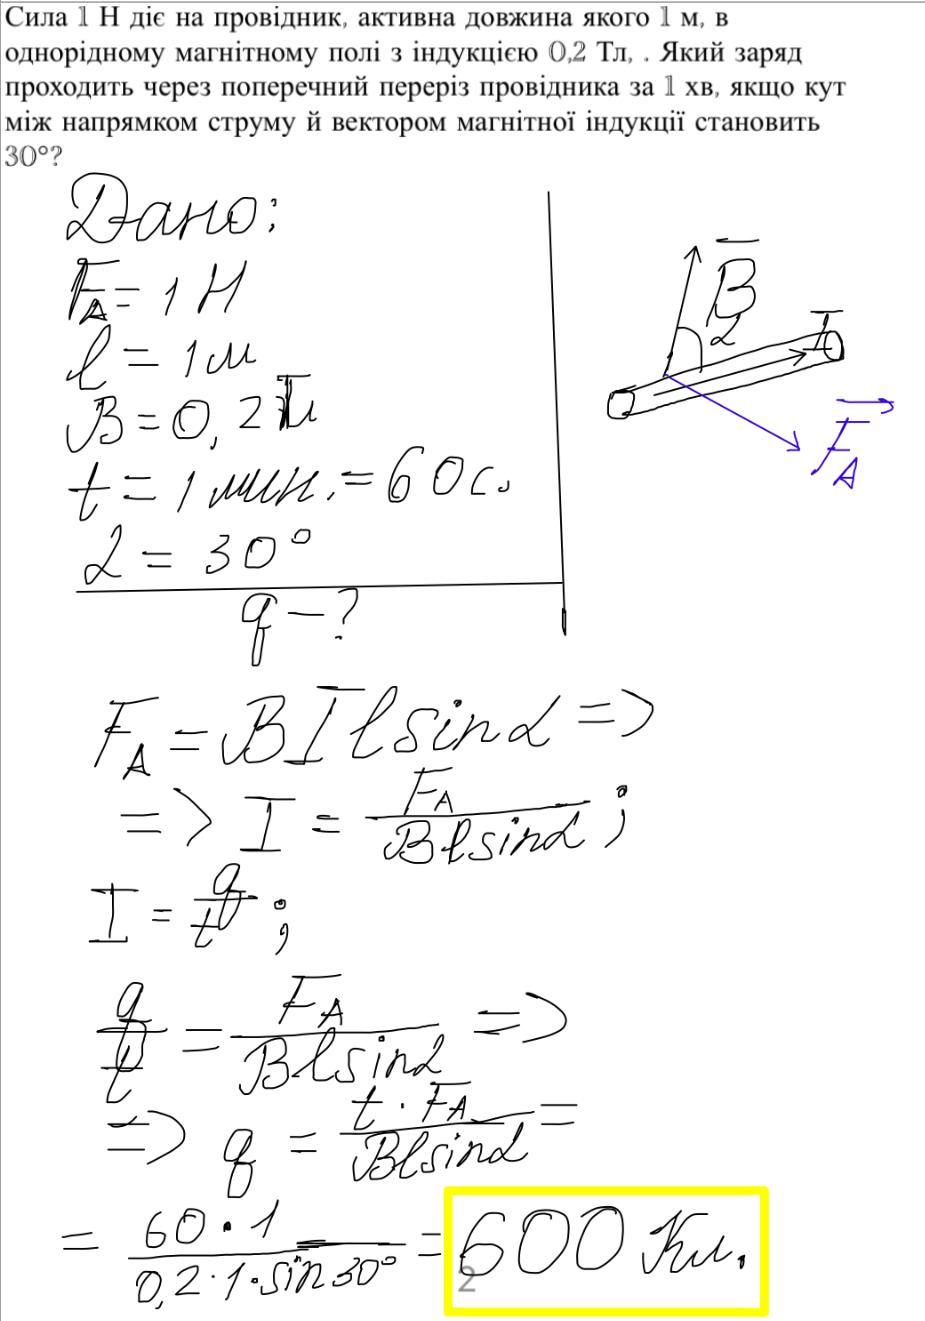 Сила 1 Н діє на провідник, активна довжина якого 1 м, в
однорідному магнітному полі з індукцією 0,2 Тл, . Який заряд
проходить через поперечний переріз провідника за 1 хв, якщо кут
між напрямком струму й вектором магнітної індукції становить
30°?
Дано:
F_A = 1 Н
l = 1 м
B = 0,2 Тл
t = 1 мин. = 60 с.
α = 30°
q - ?
B
α
I
F_A
F_A = BIl sinα =>
=> I = F_A / Bl sinα ;
I = q / t ;
q / t = F_A / Bl sinα =>
=> q = t · F_A / Bl sinα =
= 60 · 1 / 0,2 · 1 · sin 30° = 600 Кл.
2